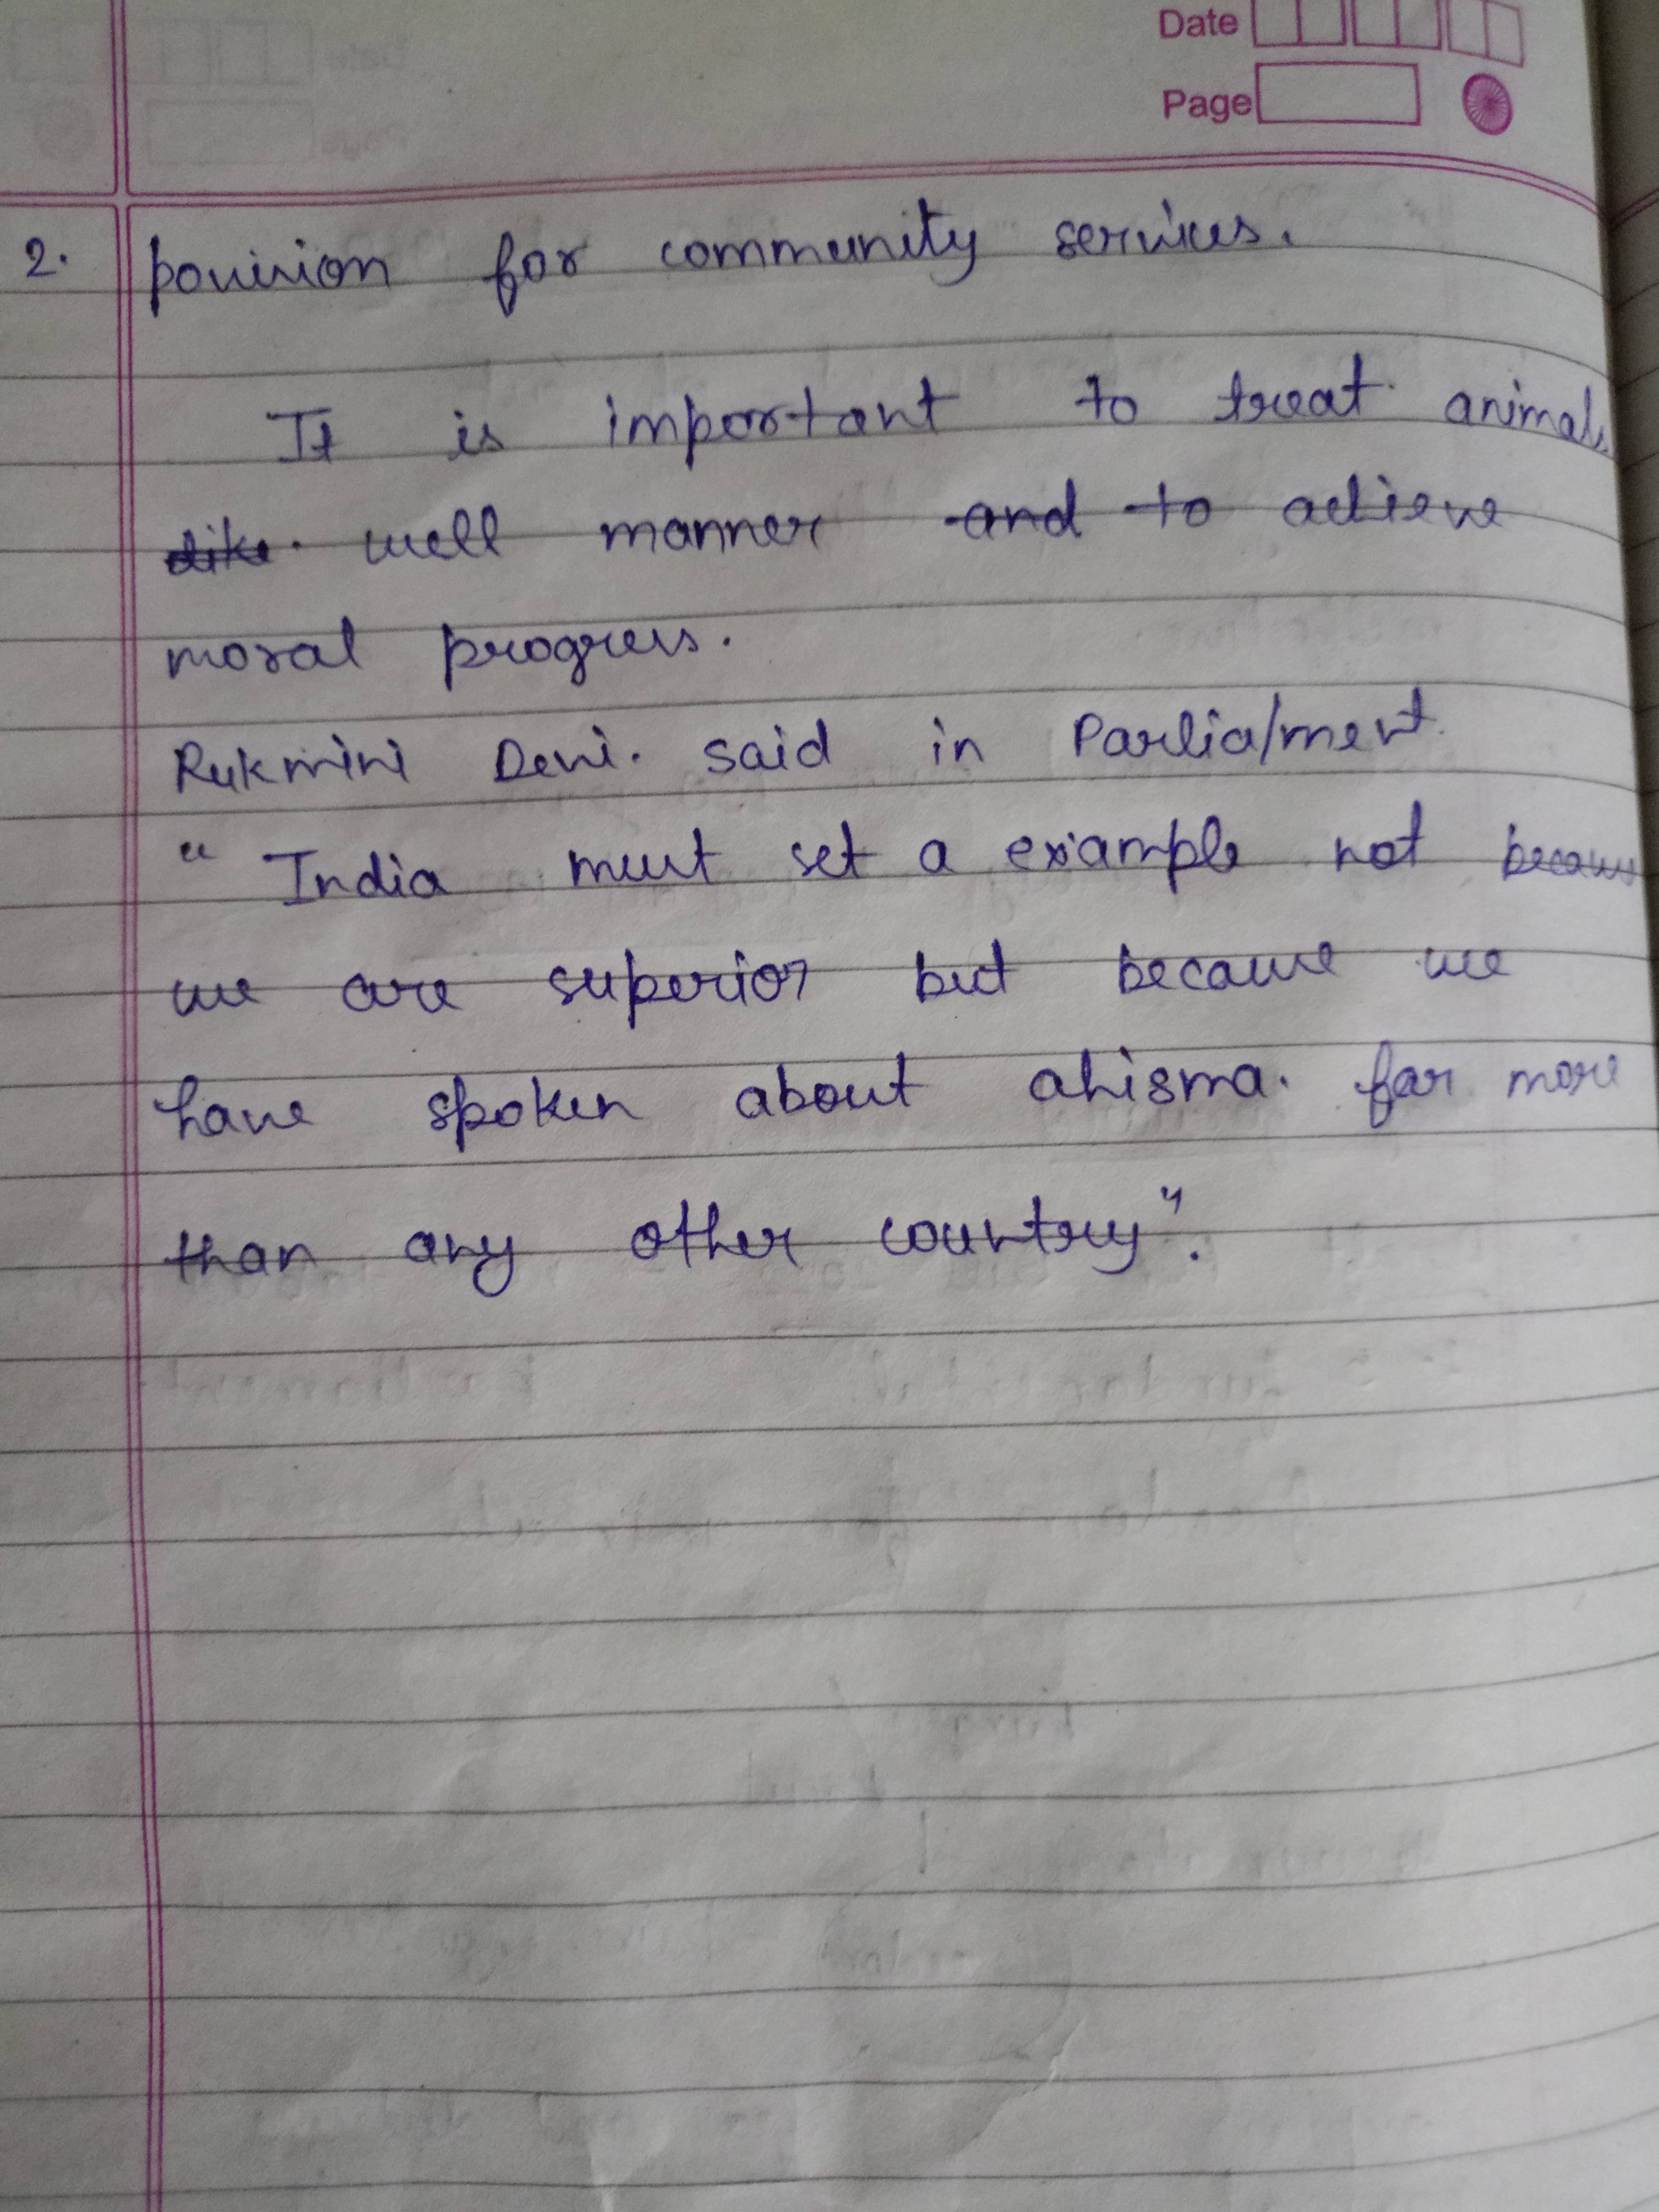 Date
Page
2. povision for community services.
It is important to treat animals
well manner and to achieve
moral progress.
Rukmini Devi. said in Parlia/ment.
" India must set a example not because
we are superior but because we
have spoken about ahisma. far more
than any other country".